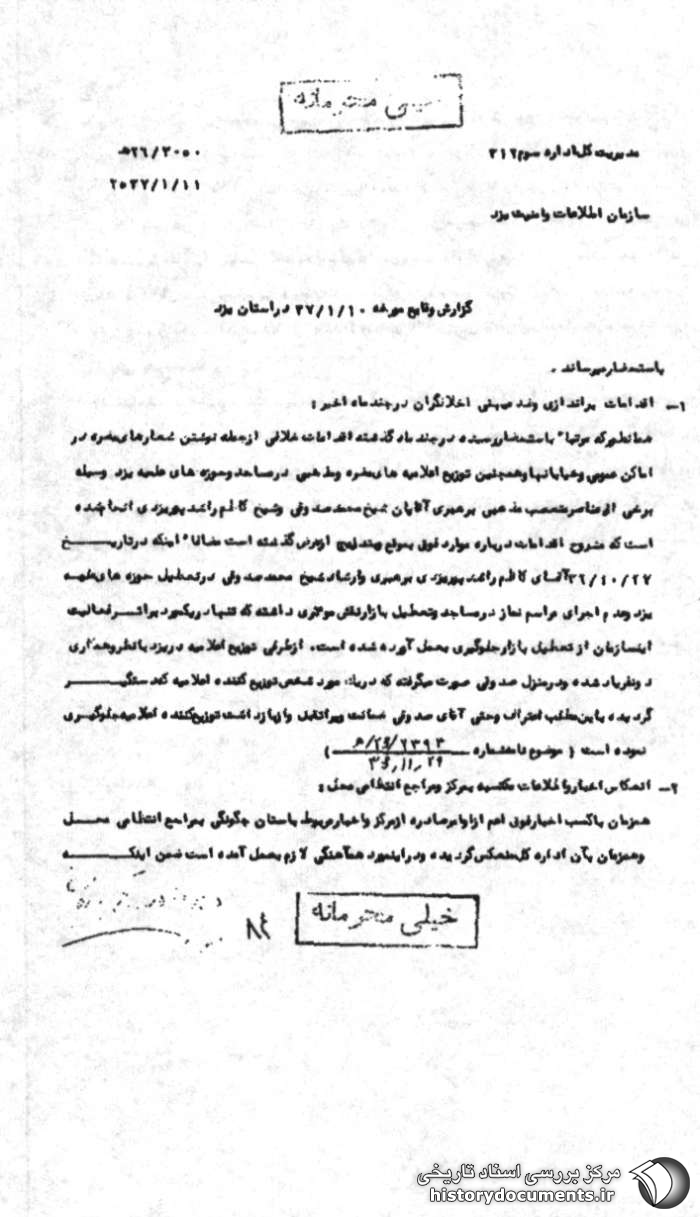 خیلی محرمانه
مدیریت کل اداره سوم ۳۱۲
۲۶/۳۰۵۰ ه‍
۲۵۳۷/۱/۱۱
سازمان اطلاعات و امنیت یزد
گزارش وقایع مورخه ۳۷/۱/۱۰ در استان یزد
باستحضار میرساند .
۱- اقدامات براندازی وضد میهنی اخلالگران در چند ماه اخیر :
همانطور که مرتبا" باستحضار رسیده در چند ماه گذشته اقدامات خلافی از جمله نوشتن شعارهای مضره در
اماکن عمومی وخیابانها وهمچنین توزیع اعلامیه های مضره ومذهبی در مساجد وحوزه های علمیه یزد وسیله
برخی از عناصر متعصب مذهبی برهبری آقایان شیخ محمد صدوقی وشیخ کاظم راشد پوریزدی انجام شده
است که مشروح اقدامات درباره موارد فوق بموقع وبتدریج از عرض گذشته است مضافا" اینکه در تاریخ
۳۶/۱۰/۲۷ آقای کاظم راشد پوریزدی برهبری وارشاد شیخ محمد صدوقی در تعطیل حوزه های علمیه
یزد وعدم اجرای مراسم نماز در مساجد وتعطیل بازار نقش موثری داشته که تنها در یکمورد براثر فعالیت
اینسازمان از تعطیل بازار جلوگیری بعمل آورده شده است. از طرفی توزیع اعلامیه در یزد با نظر وهمکاری
دونفر یاد شده ودر منزل صدوقی صورت میگرفته که در یک مورد شخص توزیع کننده اعلامیه که دستگیر
گردیده باین مطلب اعتراف وحتی آقای صدوقی ضمانت ویرا تقبل واز بازداشت توزیع کننده اعلامیه جلوگیری
نموده است ( موضوع نامه شماره ۲۶/۲۳۹۳/ه‍ )
۳۶،۱۱،۲۹
۲- انعکاس اخبار واطلاعات مکتسبه بمرکز ومراجع انتظامی محل :
همزمان باکسب اخبار فوق اعم از اوامر صادره از مرکز واخبار مربوط باستان چگونگی بمراجع انتظامی محل
وهمزمان بآن اداره کل منعکس گردیده ودر اینمورد هماهنگی لازم بعمل آمده است ضمن اینکه
خیلی محرمانه
۸۴
مرکز بررسی اسناد تاریخی
historydocuments.ir